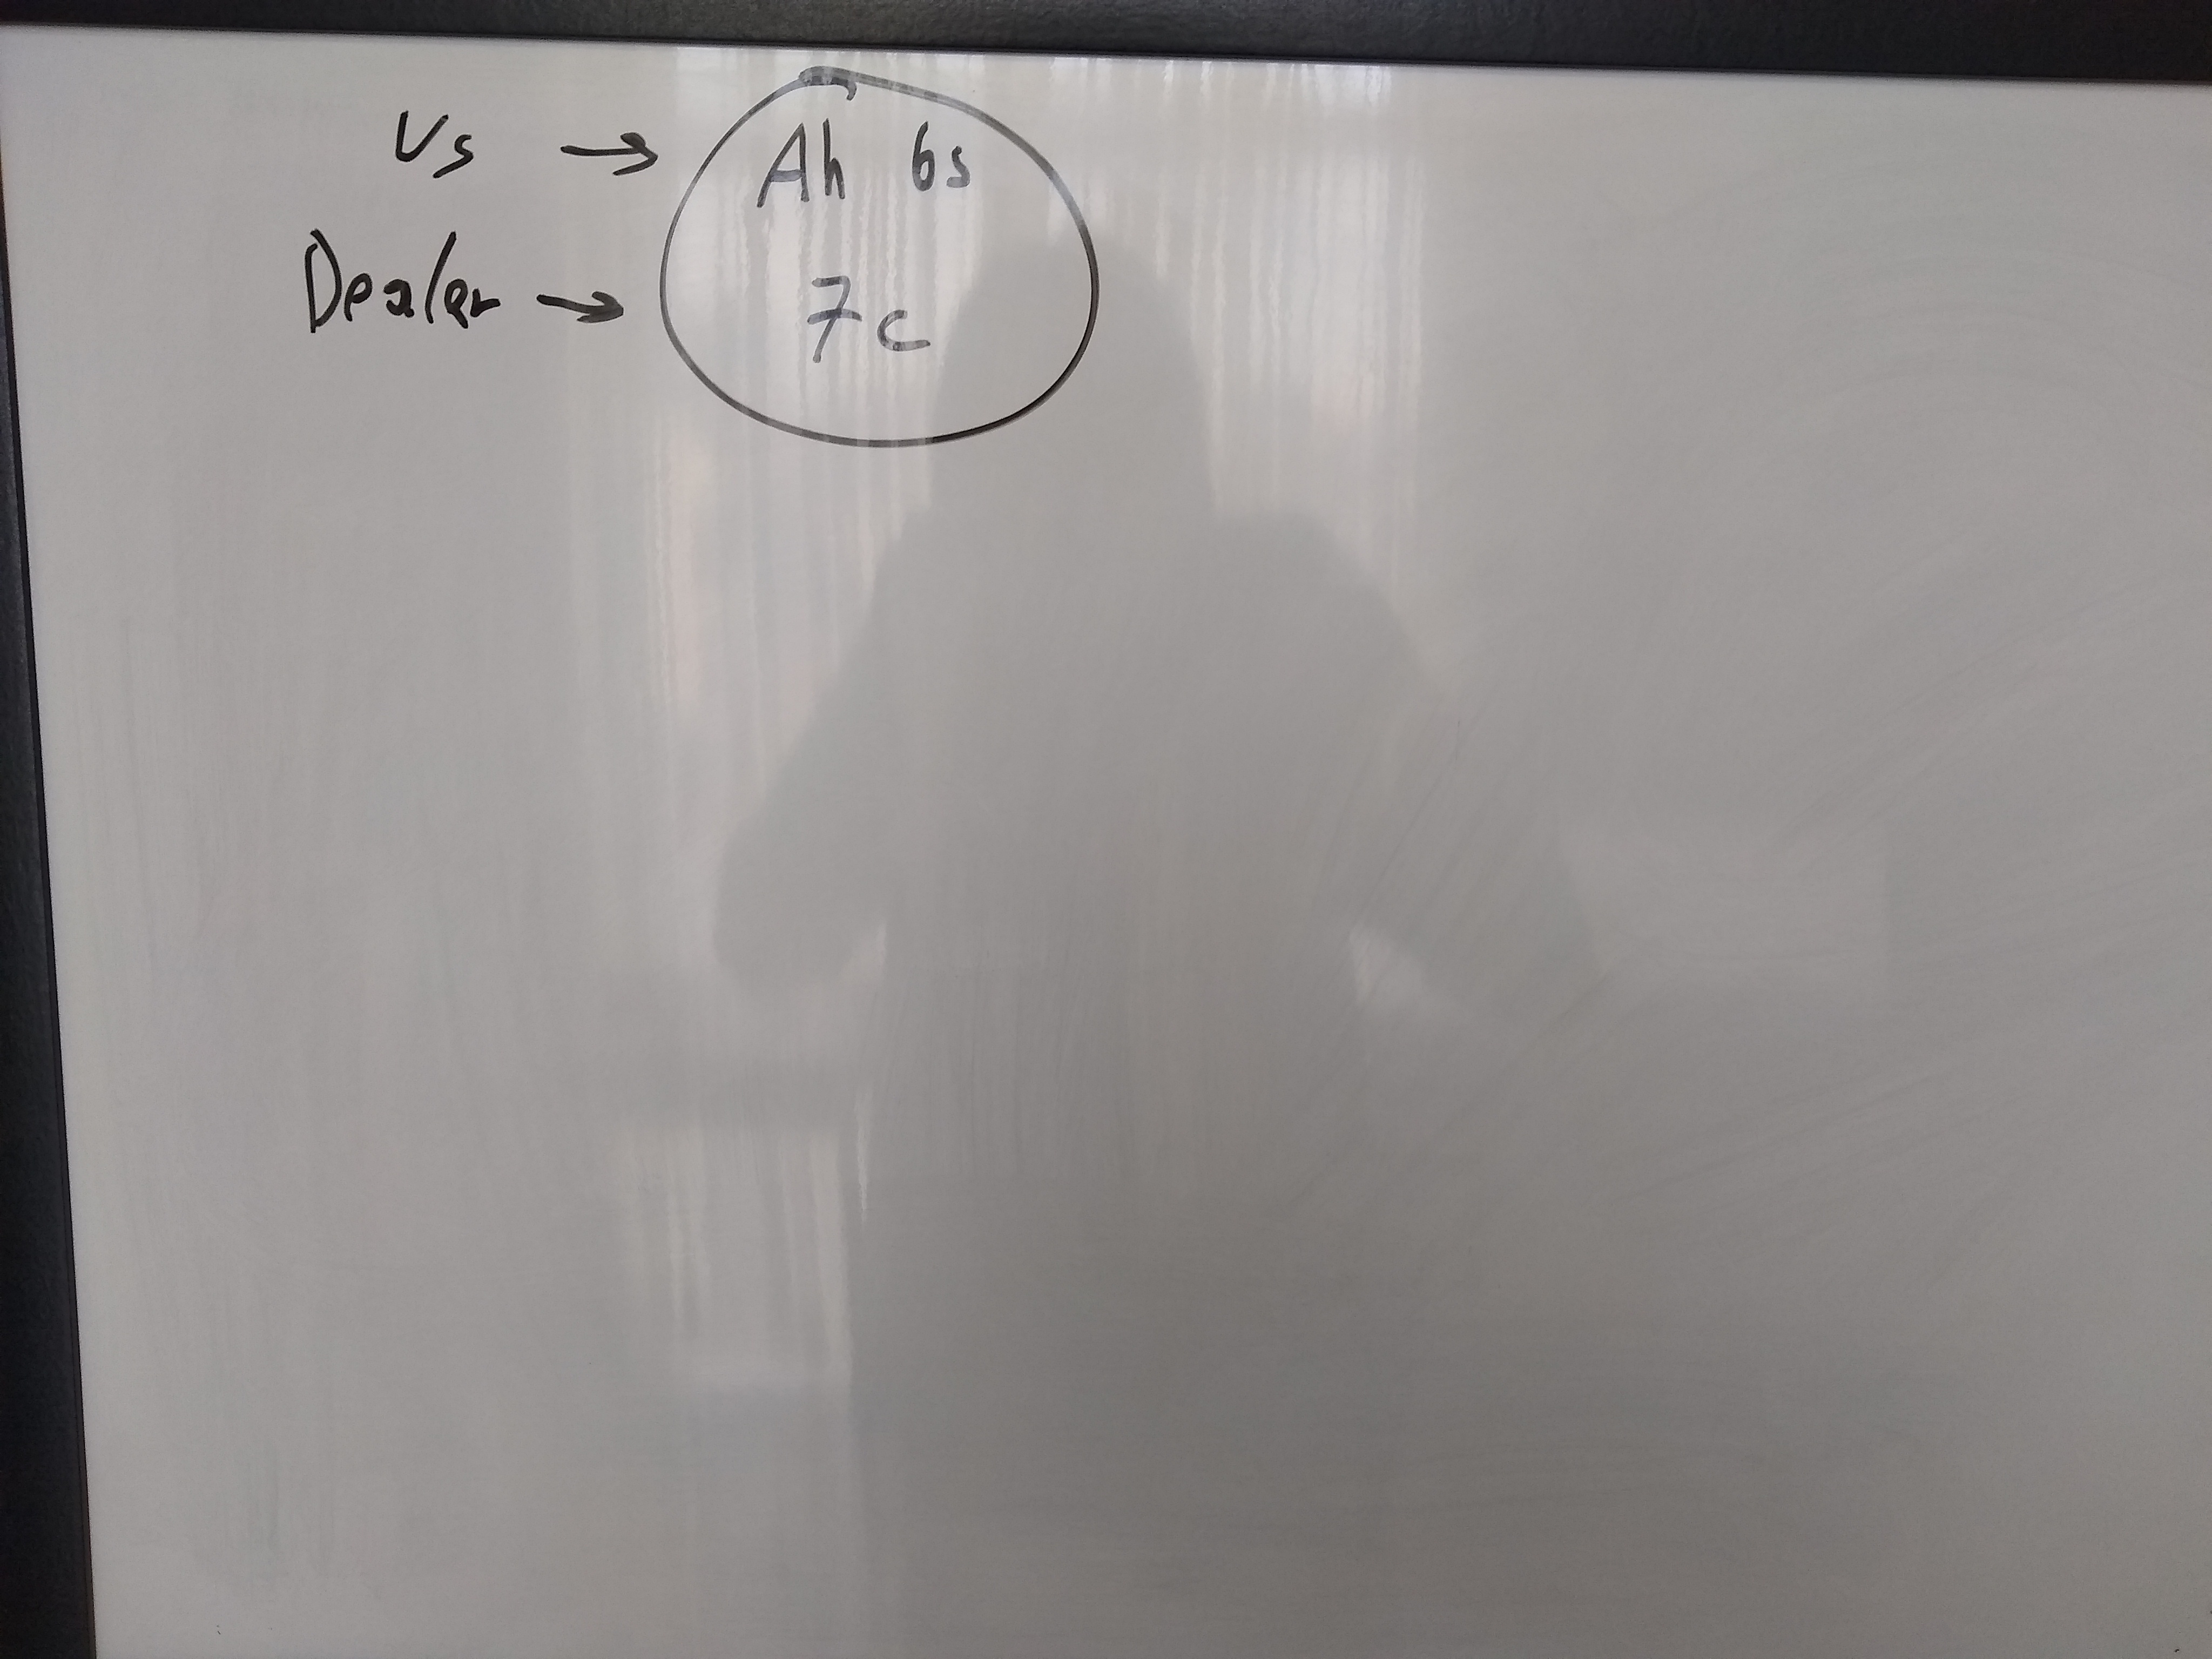 Us → Ah 6s
Dealer → 7c